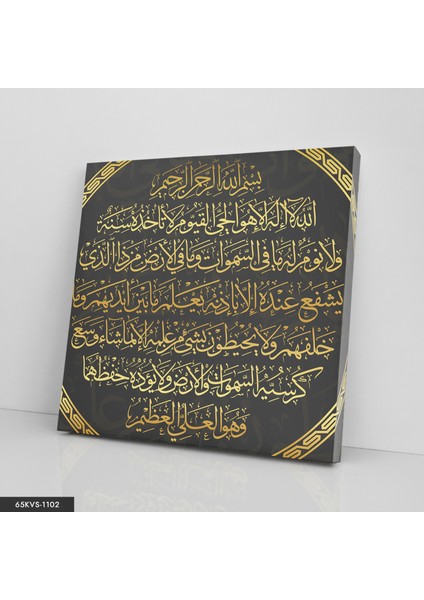 بسم الله الرحمن الرحيم
الله لا اله الا هو الحي القيوم لا تأخذه سنة
ولا نوم له ما في السموات وما في الارض من ذا الذي
يشفع عنده إلا بإذنه يعلم ما بين أيديهم وما
خلفهم ولا يحيطون بشيء من علمه إلا بما شاء وسع
كرسيه السموات والأرض ولا يؤده حفظهما
وهو العلي العظيم
65KVS-1102